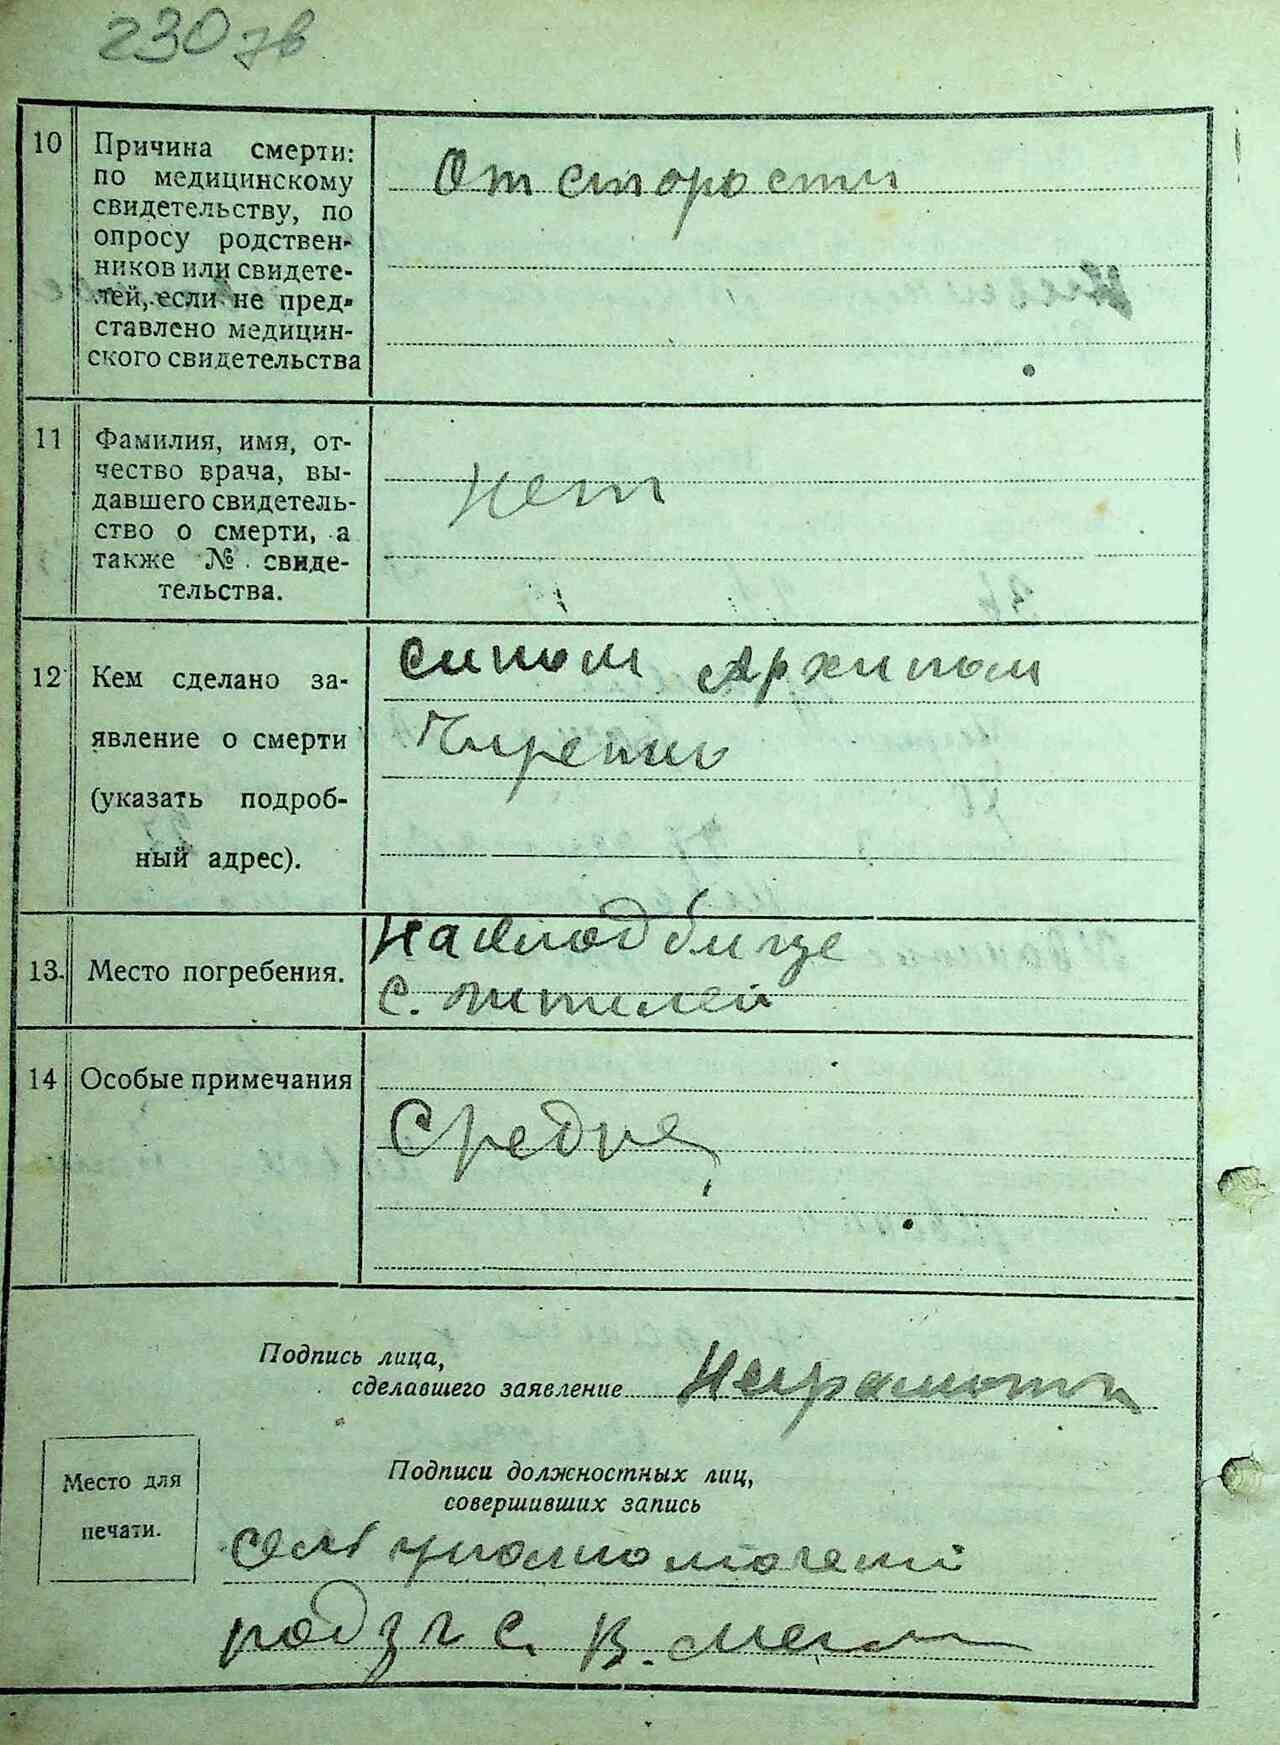 230 зв
10 Причина смерти:
по медицинскому
свидетельству, по
опросу родствен-
ников или свидете-
лей, если не пред-
ставлено медицин-
ского свидетельства
От сторости
11 Фамилия, имя, от-
чество врача, вы-
давшего свидетель-
ство о смерти, а
также № свиде-
тельства.
Нет
12 Кем сделано за-
явление о смерти
(указать подроб-
ный адрес).
Сином Архипом
13. Место погребения.
На кладбище
с.
14 Особые примечания
Средне
Подпись лица,
сделавшего заявление Неграмотн
Место для
печати.
Подписи должностных лиц,
совершивших запись
Сель уполномочени